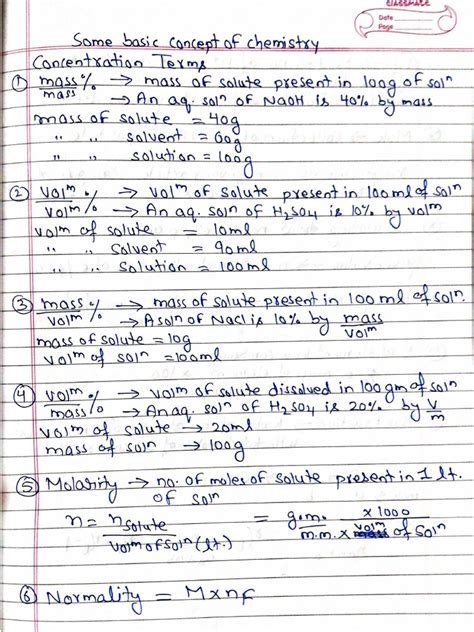 CLASSMATE
Date
Page
Some basic concept of chemistry
Concentration Terms
① mass/mass % → mass of solute present in 100g of solⁿ
→ An aq. solⁿ of NaOH is 40% by mass
mass of solute = 40g
" " solvent = 60g
" " solution = 100g
② volᵐ/volᵐ % → volᵐ of solute present in 100ml of solⁿ
→ An aq. solⁿ of H₂SO₄ is 10% by volᵐ
volᵐ of solute = 10ml
" " Solvent = 90ml
" " Solution = 100ml
③ mass/volᵐ % → mass of solute present in 100 ml of solⁿ
→ A solⁿ of NaCl is 10% by mass/volᵐ
mass of solute = 10g
volᵐ of solⁿ = 100ml
④ volᵐ/mass % → volᵐ of solute dissolved in 100gm of solⁿ
→ An aq. solⁿ of H₂SO₄ is 20% by V/m
volᵐ of solute → 20ml
mass of solⁿ → 100g
⑤ Molarity → no. of moles of solute present in 1 lt.
of solⁿ
n = nsolute / volᵐ of solⁿ (lt.) = g.m. × 1000 / m.m. × volᵐ of solⁿ
⑥ Normality = M × nf